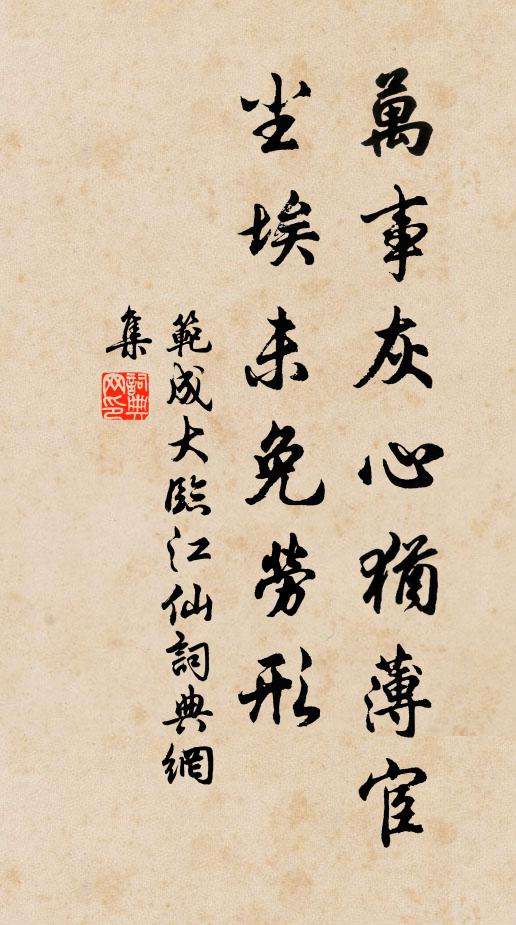 萬事灰心猶薄宦
尘埃未免勞形
範成大臨江仙詞典網
集
詞典网印